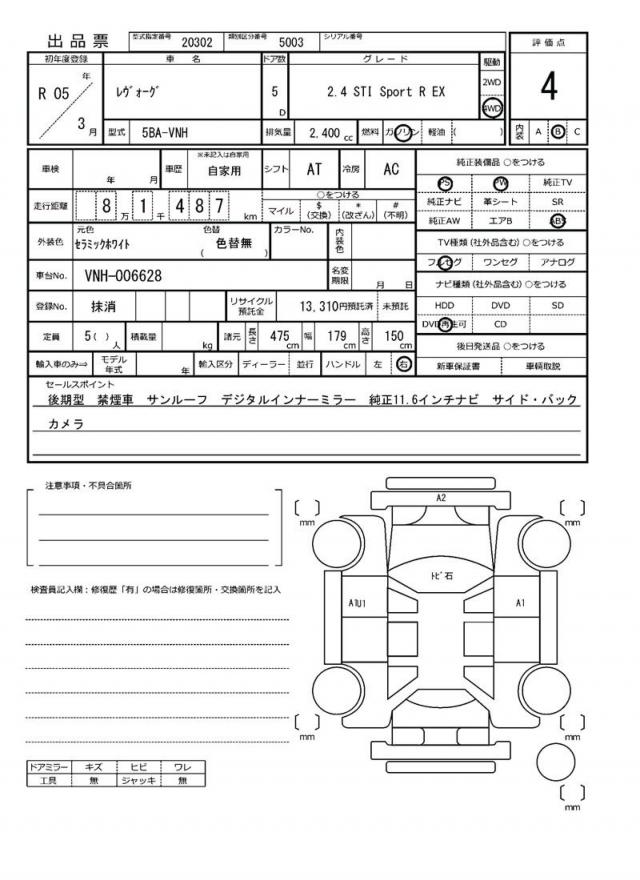 出品票 型式指定番号 20302 類別区分番号 5003 シリアル番号
評価点
4
内装 A B C
初年度登録 車名 ドア数 グレード 駆動
R 05 年 3 月 レヴォーグ 5 D 2.4 STI Sport R EX 2WD 4WD
型式 5BA-VNH 排気量 2,400 cc 燃料 ガソリン 軽油 ( )
車検 年 月 車歴 ※未記入は自家用 自家用 シフト AT 冷房 AC
走行距離 8 万 1 千 4 8 7 km ○をつける マイル $ (交換) * (改ざん) # (不明)
外装色 元色 セラミックホワイト 色替 ( 色替無 ) カラーNo. 内装色
車台No. VNH-006628 名変期限 月 日
登録No. 抹消 リサイクル預託金 13,310円預託済 未預託
定員 5( ) 人 積載量 kg 諸元 長さ 475 cm 幅 179 cm 高さ 150 cm
輸入車のみ⇒ モデル年式 年 輸入区分 ディーラー 並行 ハンドル 左 右
純正装備品 ○をつける
PS PW 純正TV
純正ナビ 革シート SR
純正AW エアB ABS
TV種類 (社外品含む) ○をつける
フルセグ ワンセグ アナログ
ナビ種類 (社外品含む) ○をつける
HDD DVD SD
DVD再生可 CD
後日発送品 ○をつける
新車保証書 車輌取説
セールスポイント
後期型 禁煙車 サンルーフ デジタルインナーミラー 純正11.6インチナビ サイド・バック
カメラ
注意事項・不具合箇所
検査員記入欄:修復歴「有」の場合は修復箇所・交換箇所を記入
ドアミラー キズ ヒビ ワレ
工具 無 ジャッキ 無
A2
mm
mm
トビ石
A1U1
A1
mm
mm
mm